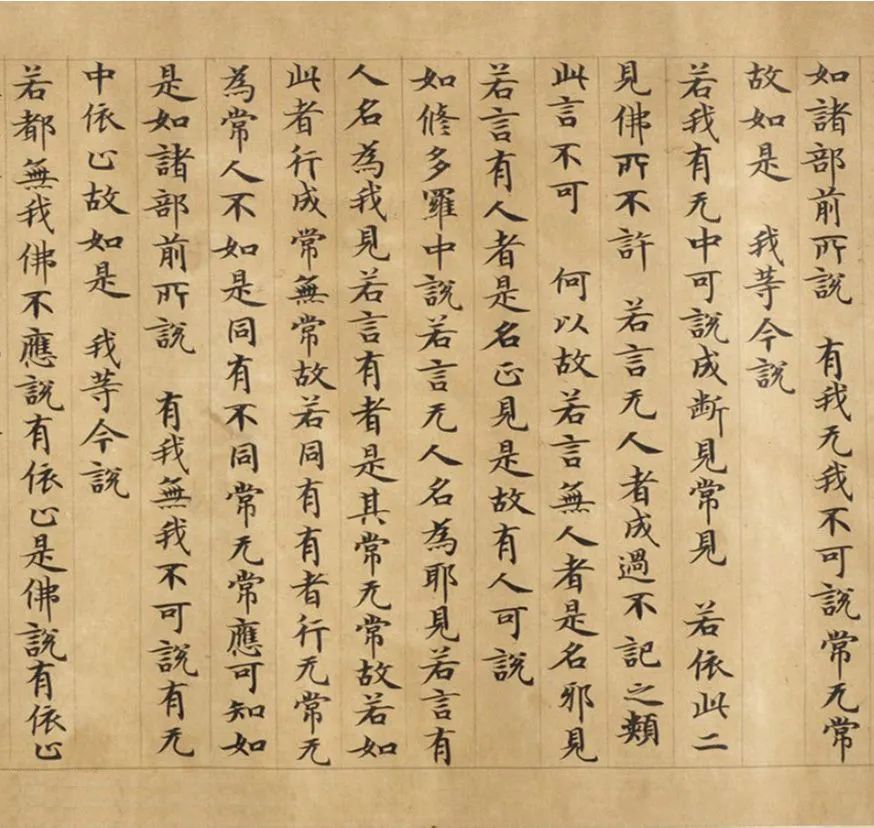 如諸部前所説　有我无我不可説常无常
故如是　我等今説
若我有无中可説成断見常見　若依此二
見佛所不許　若言无人者成過不記之類
此言不可　何以故若言無人者是名邪見
若言有人者是名正見是故有人可説
如修多羅中説若言无人名為耶見若言有
人名為我見若言有者是其常无常故若如
此者行成常無常故若同有有者行无常无
為常人不如是同有不同常无常應可知如
是如諸部前所説　有我無我不可説有无
中依心故如是　我等今説
若都無我佛不應説有依心是佛説有依心